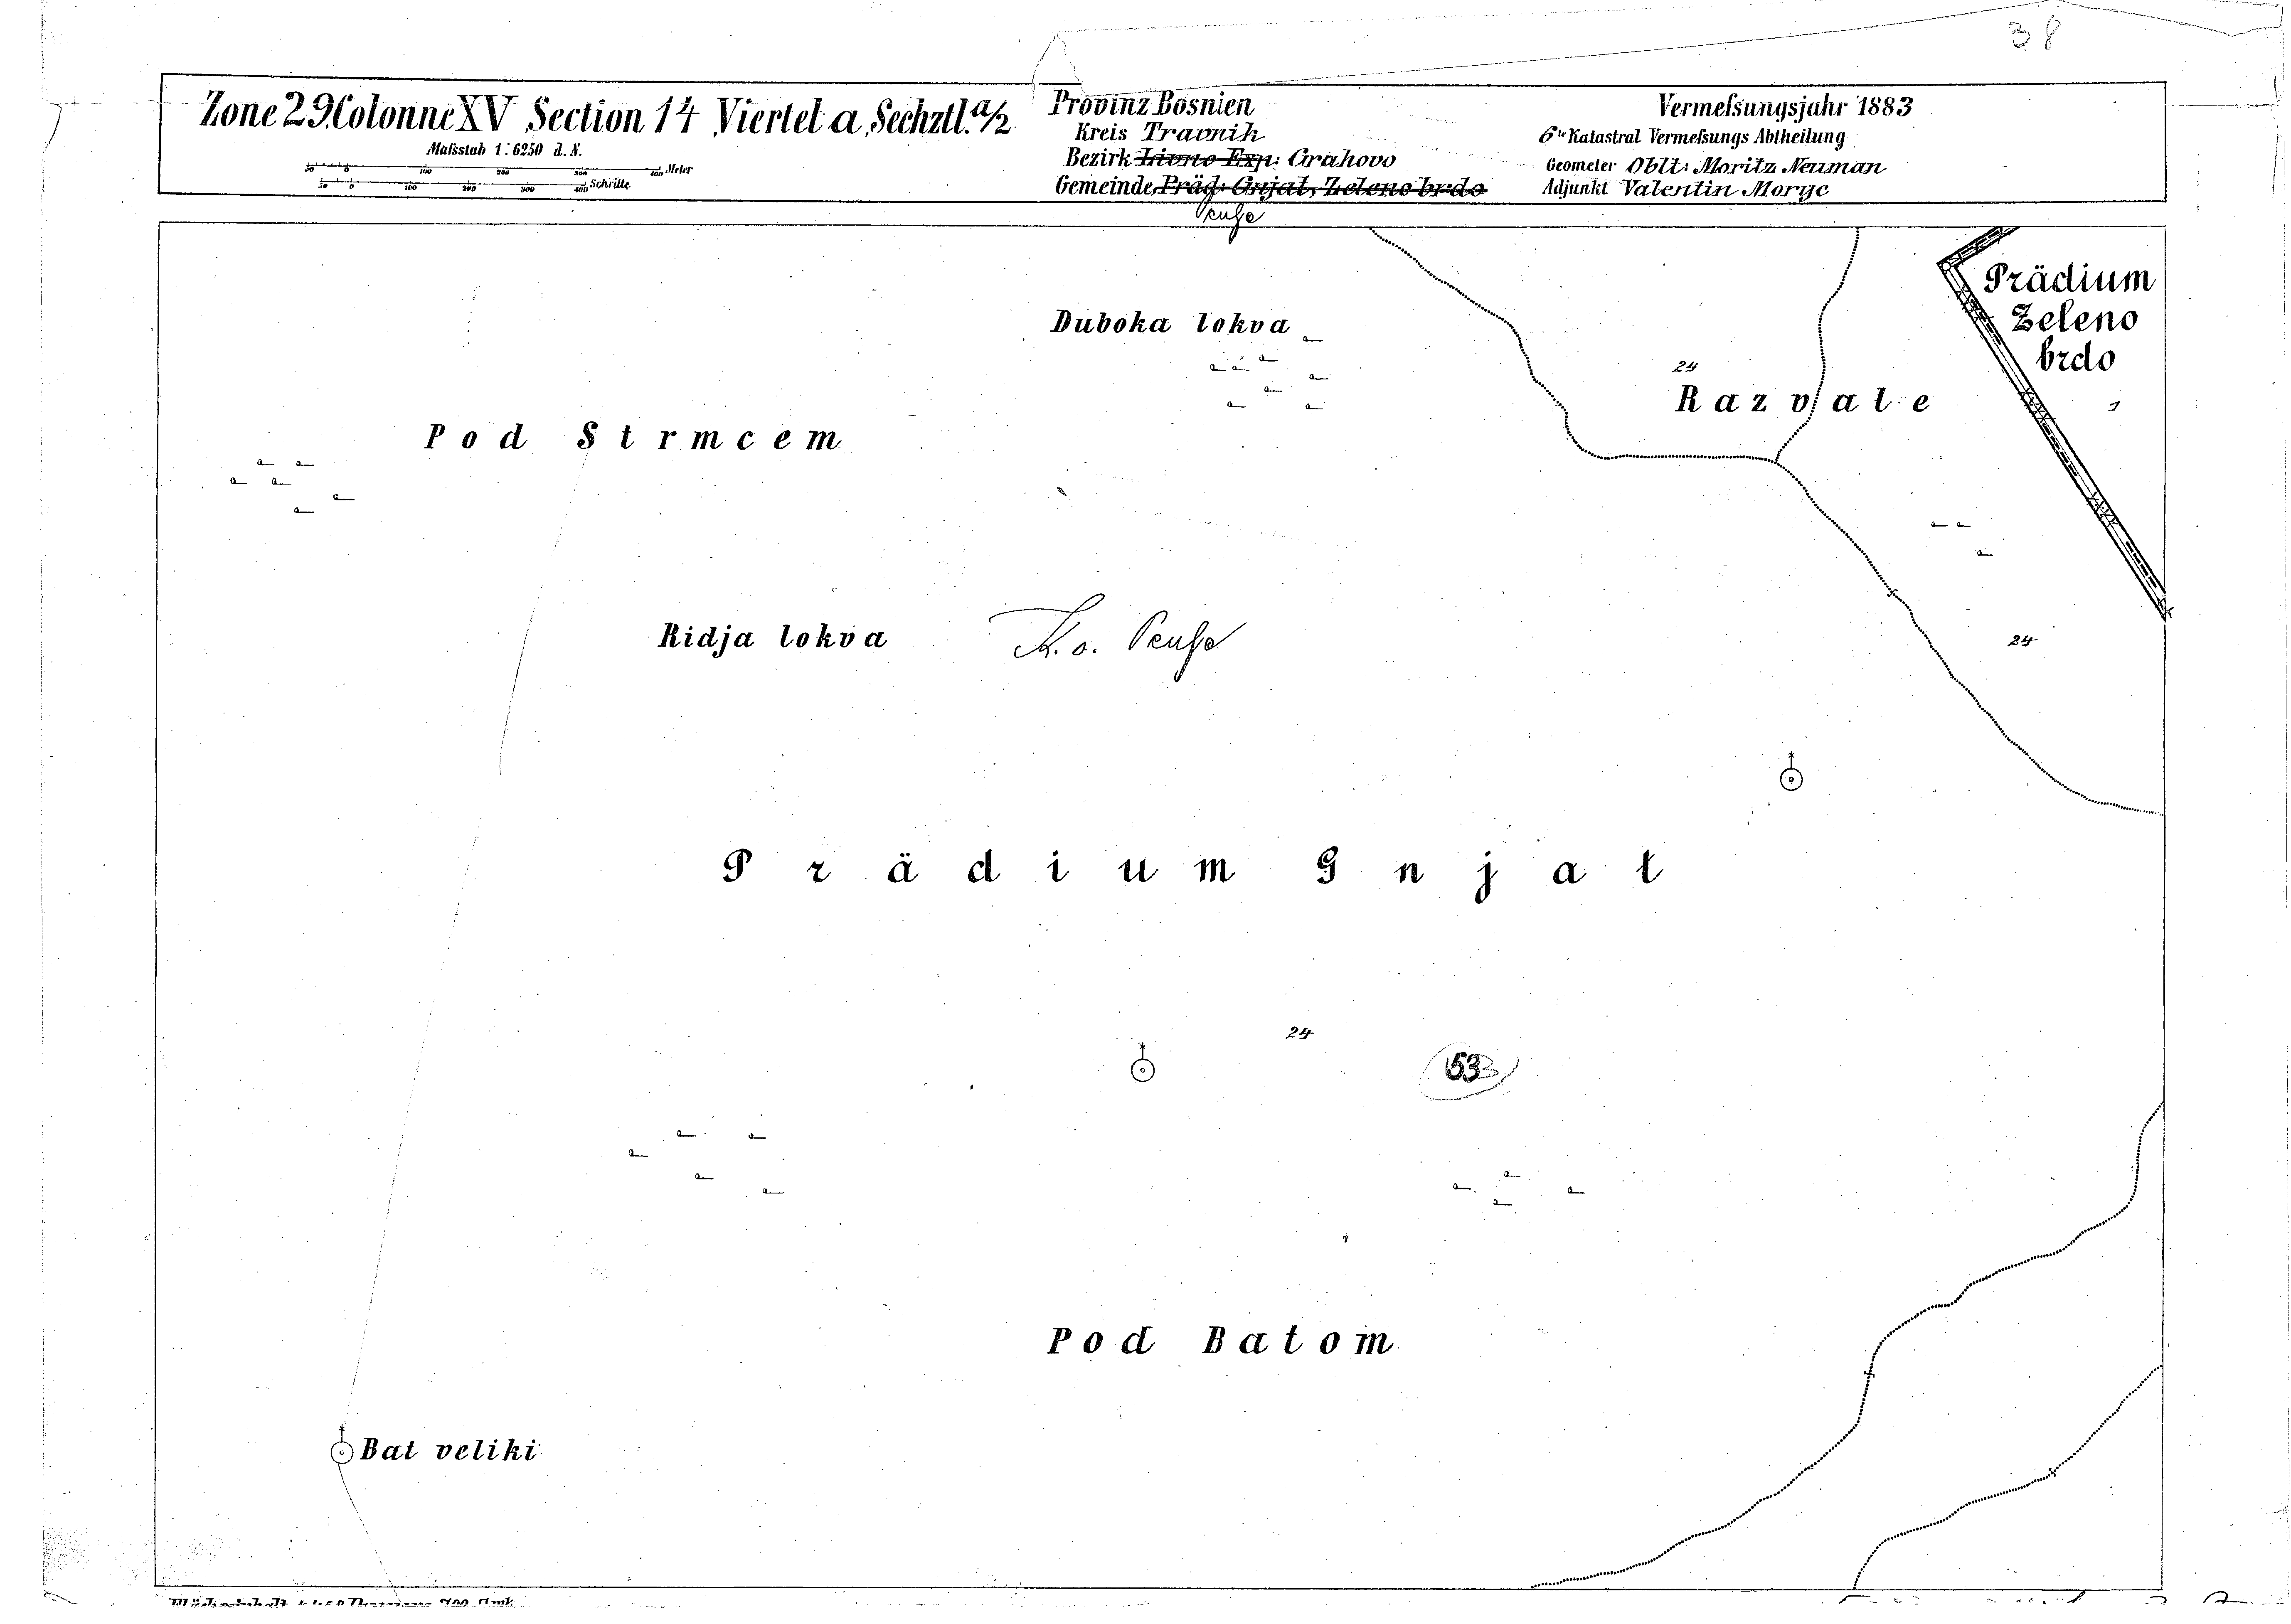 38
Zone 29 Colonne XV Section 14 Viertel a Sechztl. a/2
Maſsstab 1:6250 d. N.
50 0 100 200 300 400 Meter
50 0 100 200 300 400 Schritte
Provinz Bosnien
Kreis Travnik
Bezirk Livno Exp: Grahovo
Gemeinde Präd: Gnjat, Zeleno brdo
Vermeſsungsjahr 1883
6te Katastral Vermeſsungs Abtheilung
Geometer Oblt: Moritz Neuman
Adjunkt Valentin Moryc
Prädium
Zeleno
brdo
Duboka lokva
24
Razvale
1
Pod Strmcem
Ridja lokva
K. o.
24
Prädium Gnjat
24
53
Pod Batom
Bat veliki